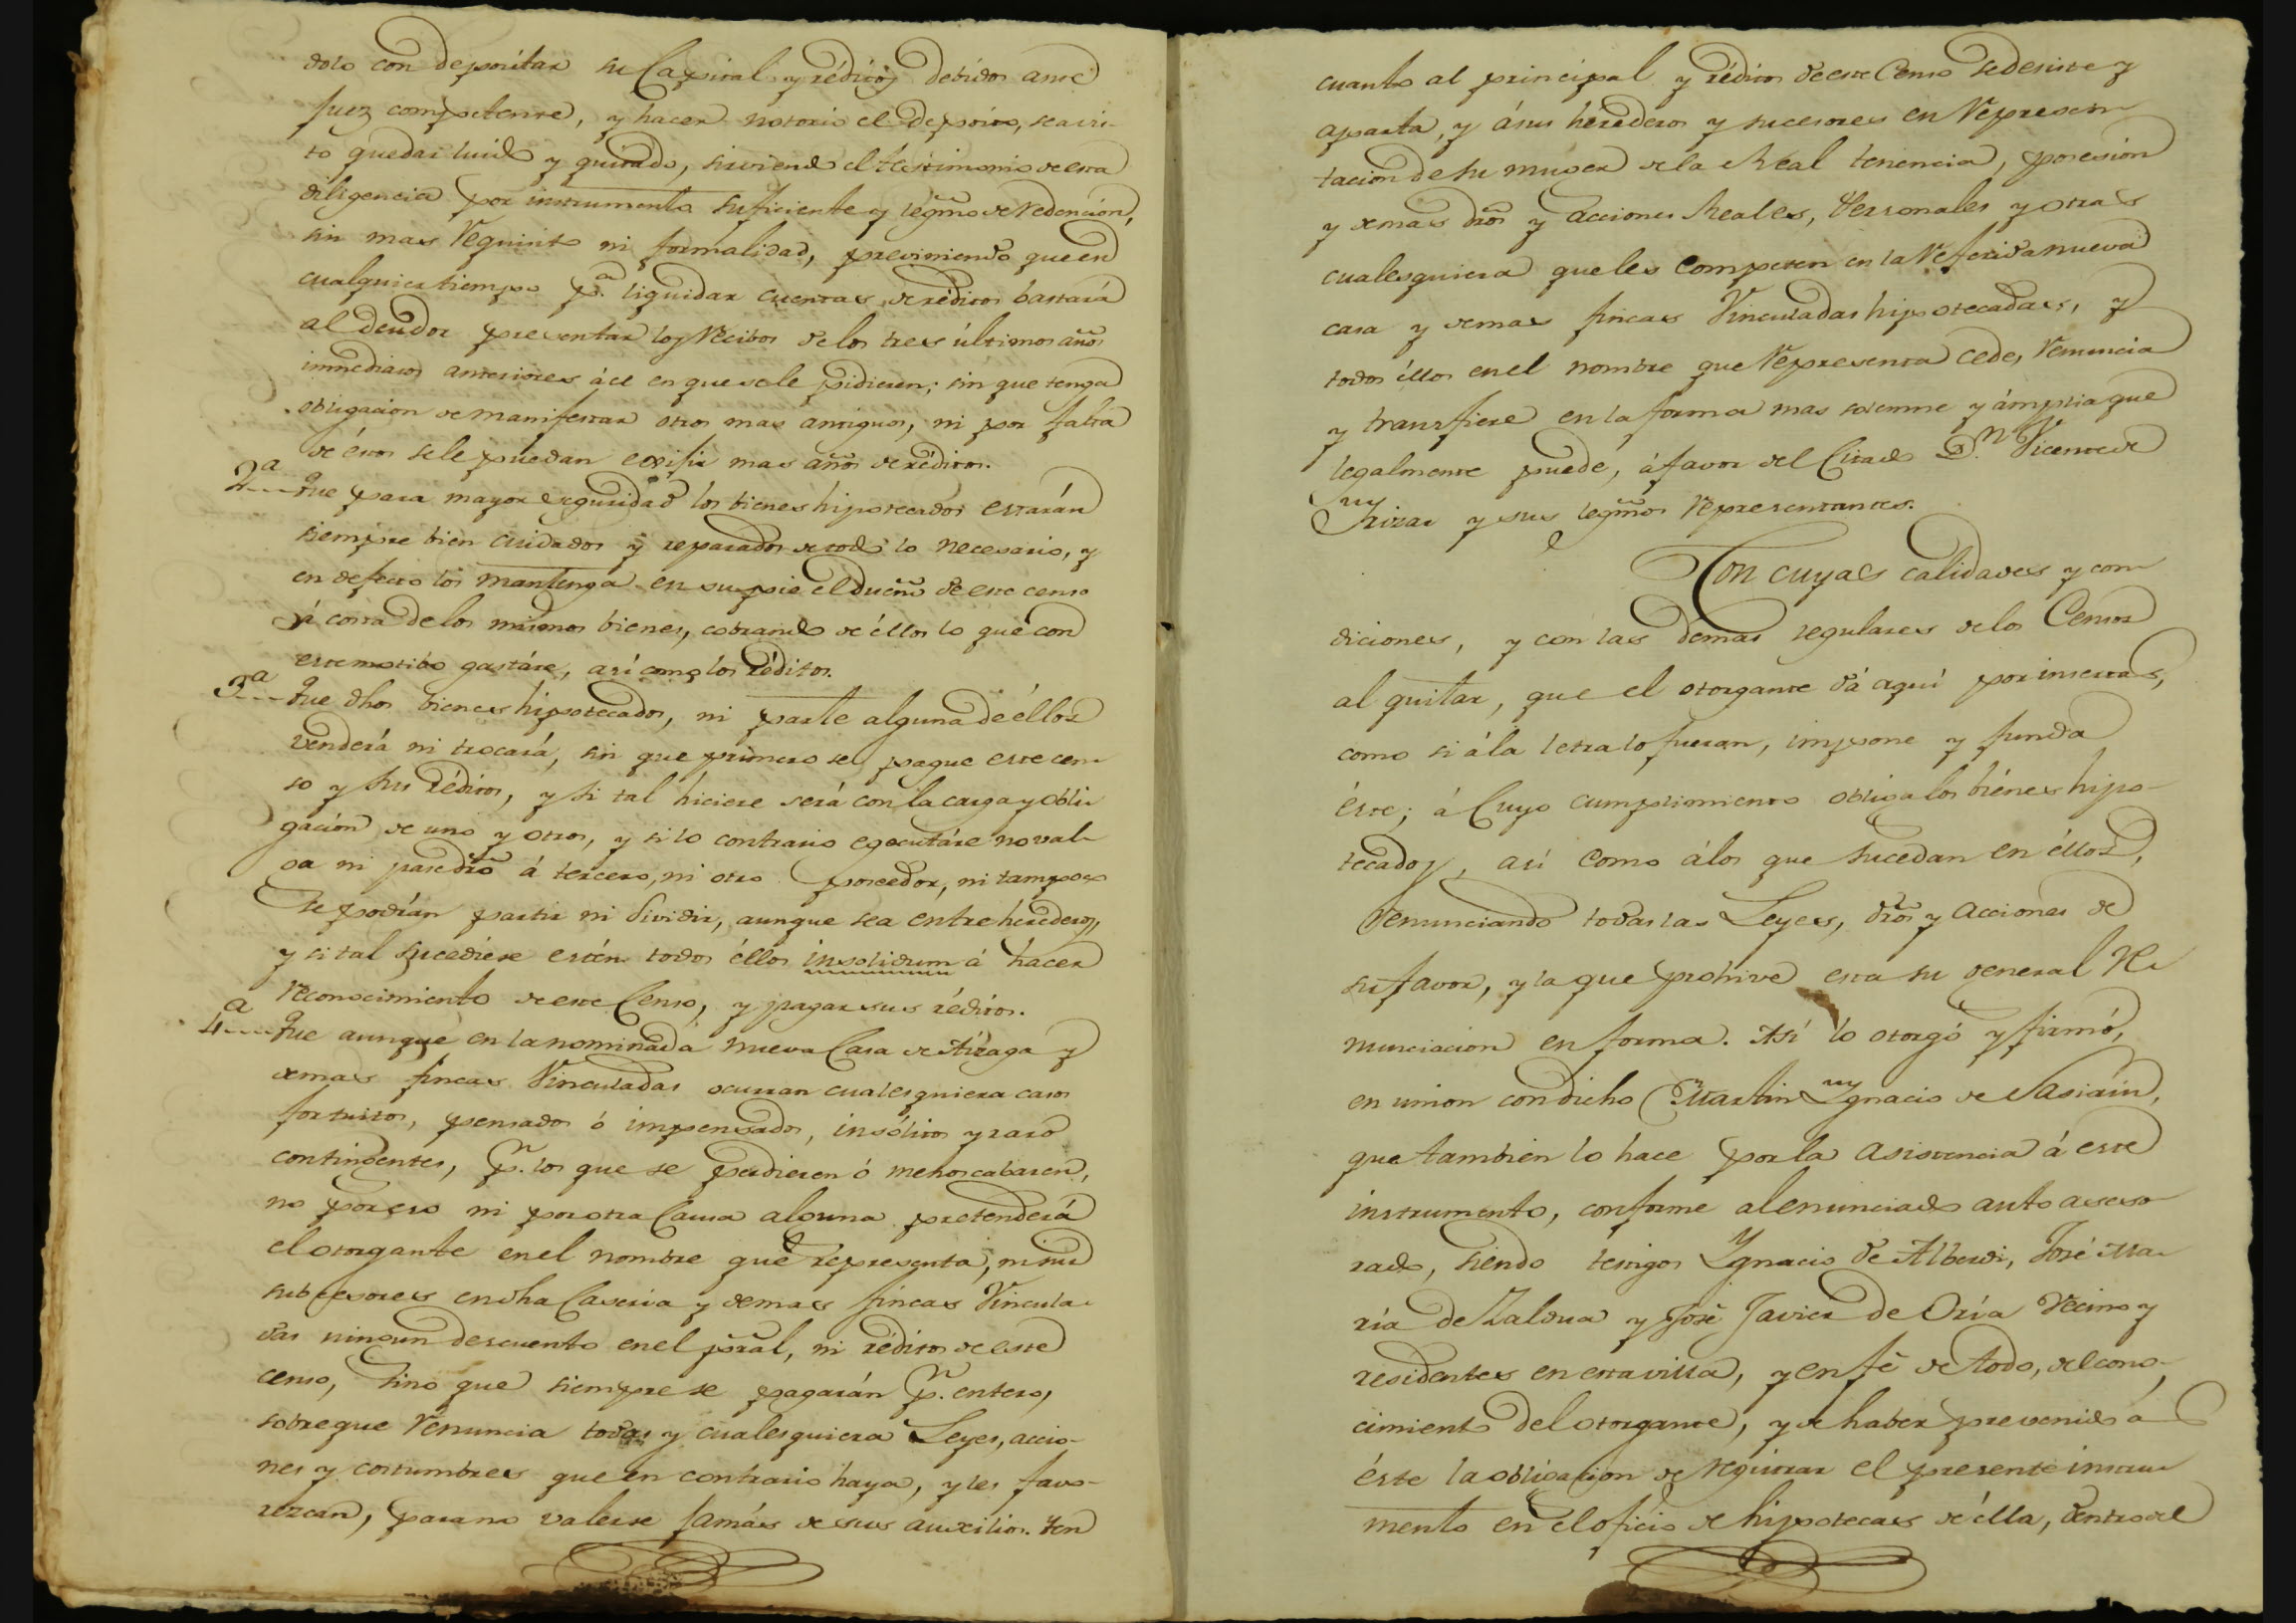 dolo con depositar su Capital y réditos debidos ante
Juez competente, y hacer notorio el deposito, sea vis-
to quedar luido y quitado, sirviendo el testimonio de esta
diligencia por instrumento suficiente y legmo de redencion,
sin mas requisito ni formalidad, previniendo que en
cualquier tiempo pa. liquidar cuentas de réditos bastará
al deudor presentar los recibos de los tres últimos años
inmediatos anteriores á el en que se le pidieren; sin que tenga
obligacion de manifestar otros mas antiguos, ni por falta
de éstos se le puedan exijir mas años de réditos.
2a---Que para mayor seguridad los bienes hipotecados estarán
siempre bien cuidados y reparados de todo lo necesario, y
en defecto los mantenga en su pie el dueño de este censo
á costa de los mismos bienes, cobrando de éllos lo que con
este motibo gastáre, así como los réditos.
3a---Que dhos bienes hipotecados, ni parte alguna de éllos
venderá ni trocará, sin que primero se pague este cen-
so y sus réditos, y si tal hiciere será con la carga y obli-
gación de uno y otros, y si lo contrario egecutáre no val-
ga ni pase dro á tercero, ni otro poseedor, ni tampoco
se podrán partir ni dividir, aunque sea entre herederos,
y si tal sucediere estén todos éllos insolidum á hacer
reconocimiento de este Censo, y pagar sus réditos.
4a---Que aunque en la nominada nueva Casa de Aizaga y
demas fincas Vinculadas ocurran cualesquiera casos
fortuitos, pensados ó impensados, insólitos y raro
contingentes, pr. los que se perdieren ó menoscabaren,
no por eso ni por otra Causa alguna pretenderá
el otorgante en el nombre que representa, ni sus
subcesores en dha Caseria y demas fincas Vincula-
das ningun descuento en el pral, ni réditos de este
censo, sino que siempre se pagarán pr. entero,
sobre que renuncia todas y cualesquiera Leyes, accio-
nes y costumbres que en contrario haya, y les favo-
rezcan, para no valerse jamás de sus auxilios. Y en
cuanto al principal y réditos de este Censo se desiste y
aparta, y á sus herederos y sucesores en represen-
tacion de su muger de la Real tenencia, posesion
y demas dros y acciones Reales, Personales y otras
cualesquiera que les competen en la referida nueva
casa y demas fincas Vinculadas hipotecadas, y
todos éllos en el nombre que representa cede, renuncia
y transfiere en la forma mas solemne y ámplia que
legalmente puede, á favor del Citado Dn. Vicente de
Yrizar y sus legmos representantes.
Con cuyas calidades y con-
diciones, y con las demas regulares de los Censos
al quitar, que el otorgante dá aquí por insertas,
como si á la letra lo fueran, impone y funda
éste; á Cuyo cumplimiento obliga los bienes hipo-
tecados, así como á los que sucedan en éllos,
renunciando todas las Leyes, dros y acciones de
su favor, y la que prohive esta su general Re-
nunciacion en forma. Así lo otorgó y firmó,
en union con dicho Martin Ygnacio de Sasiain,
que tambien lo hace por la asistencia á este
instrumento, conforme al enunciado auto aseso-
rado, siendo testigos Ygnacio de Alberdi, José Ma-
ría de Zaldua y José Javier de Oria Vecinos y
residentes en esta villa, y en fé de todo, del cono-
cimiento del otorgante, y de haber prevenido á
éste la obligacion de registrar el presente instru-
mento en el oficio de hipotecas de élla, dentro del